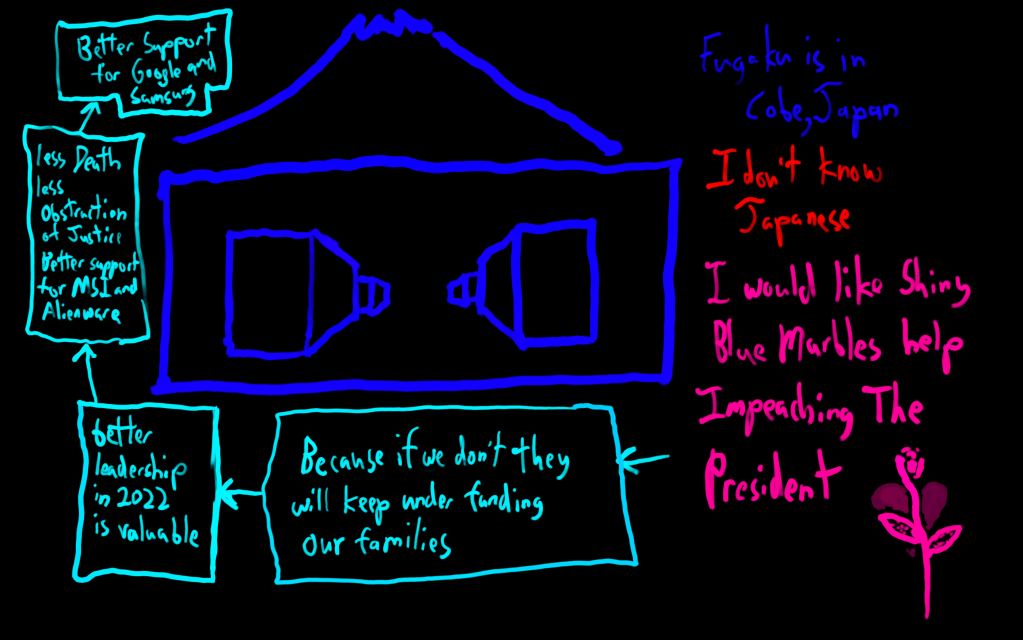 Better Support
for Google and
Samsung
less Death
less
Obstruction
of Justice
Better support
for MSI and
Alienware
better
leadership
in 2022
is valuable
Because if we don't they
will keep under funding
our families
Fugaku is in
Cobe, Japan
I don't know
Japanese
I would like Shiny
Blue Marbles help
Impeaching The
President